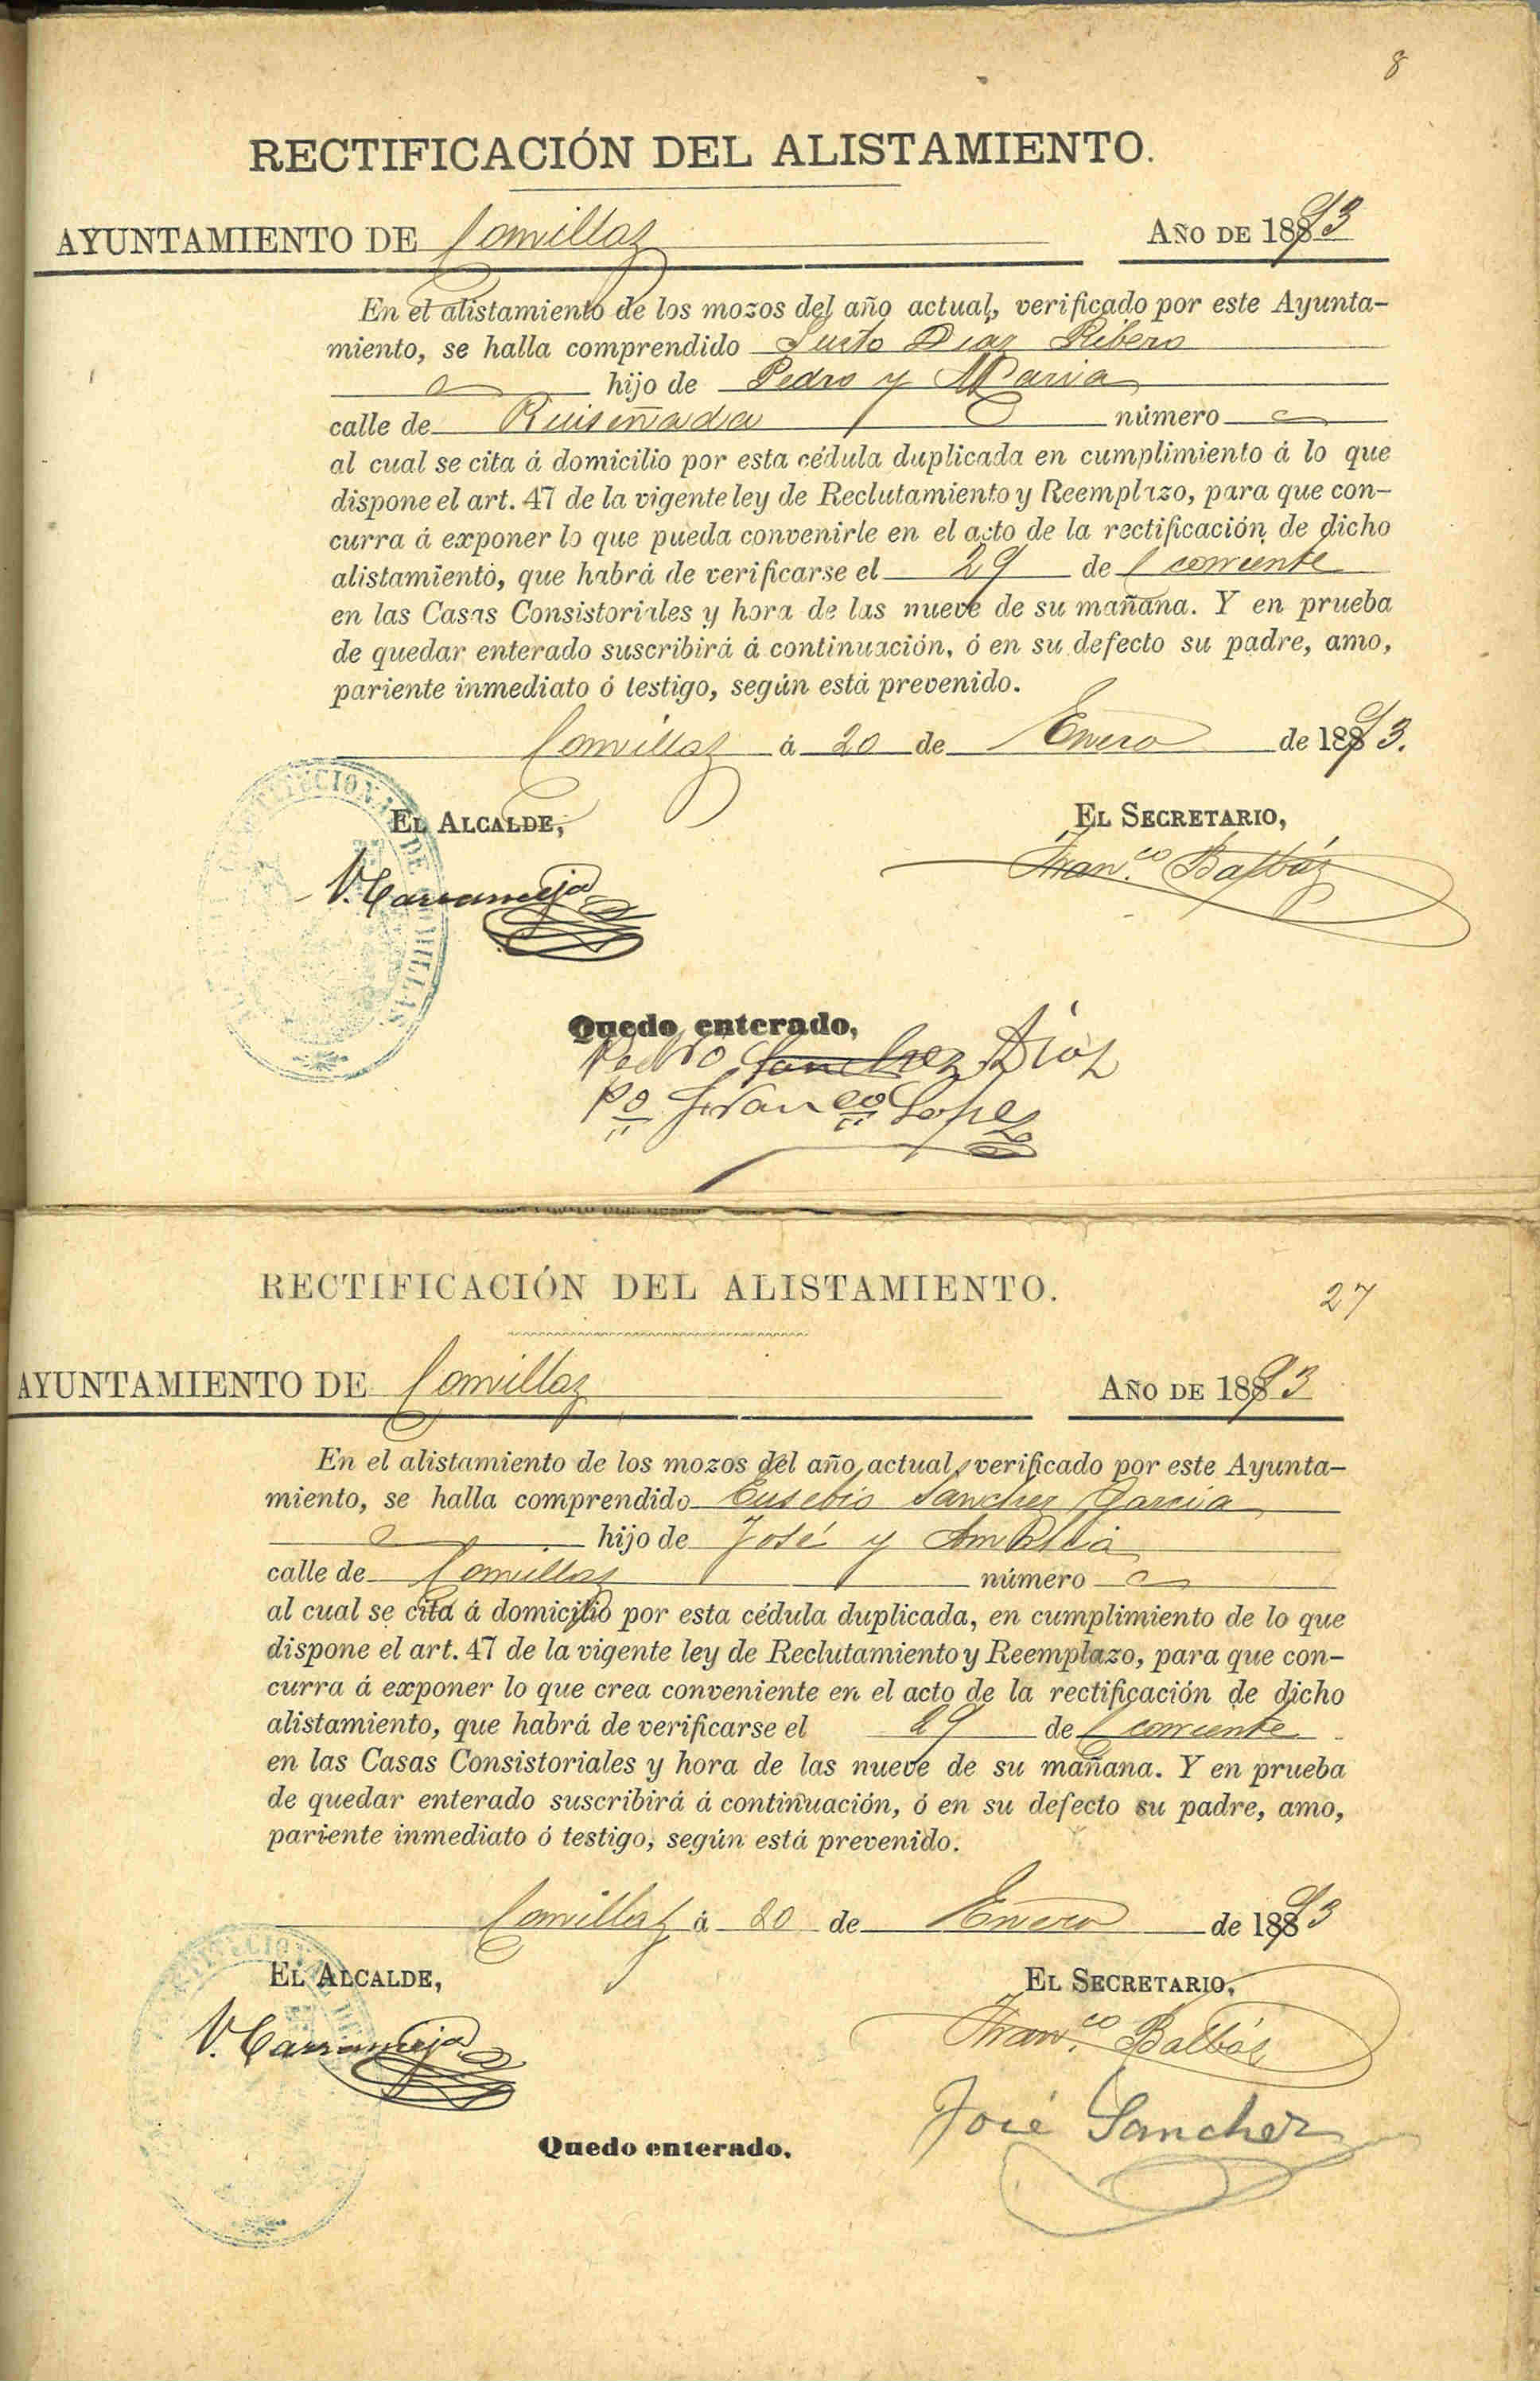 8
RECTIFICACIÓN DEL ALISTAMIENTO.
AYUNTAMIENTO DE Comillas AÑO DE 1893
En el alistamiento de los mozos del año actual, verificado por este Ayunta-
miento, se halla comprendido Justo Diaz Ribero
hijo de Pedro y Maria
calle de Ruiseñada número
al cual se cita á domicilio por esta cédula duplicada en cumplimiento á lo que
dispone el art. 47 de la vigente ley de Reclutamiento y Reemplazo, para que con-
curra á exponer lo que pueda convenirle en el acto de la rectificación de dicho
alistamiento, que habrá de verificarse el 29 de corriente
en las Casas Consistoriales y hora de las nueve de su mañana. Y en prueba
de quedar enterado suscribirá á continuación, ó en su defecto su padre, amo,
pariente inmediato ó testigo, según está prevenido.
Comillas á 20 de Enero de 1893.
EL ALCALDE, EL SECRETARIO,
V. Carranceja Fran.co Balbás
Quedo enterado,
Pedro Sanchez Diaz
Po Franco Lopez
RECTIFICACIÓN DEL ALISTAMIENTO.
27
AYUNTAMIENTO DE Comillas AÑO DE 1893
En el alistamiento de los mozos del año actual, verificado por este Ayunta-
miento, se halla comprendido Eusebio Sanchez Garcia
hijo de José y Amalia
calle de Comillas número
al cual se cita á domicilio por esta cédula duplicada, en cumplimiento de lo que
dispone el art. 47 de la vigente ley de Reclutamiento y Reemplazo, para que con-
curra á exponer lo que crea conveniente en el acto de la rectificación de dicho
alistamiento, que habrá de verificarse el 29 de corriente
en las Casas Consistoriales y hora de las nueve de su mañana. Y en prueba
de quedar enterado suscribirá á continuación, ó en su defecto su padre, amo,
pariente inmediato ó testigo, según está prevenido.
Comillas á 20 de Enero de 1893
EL ALCALDE, EL SECRETARIO,
V. Carranceja Fran.co Balbás
José Sanchez
Quedo enterado.